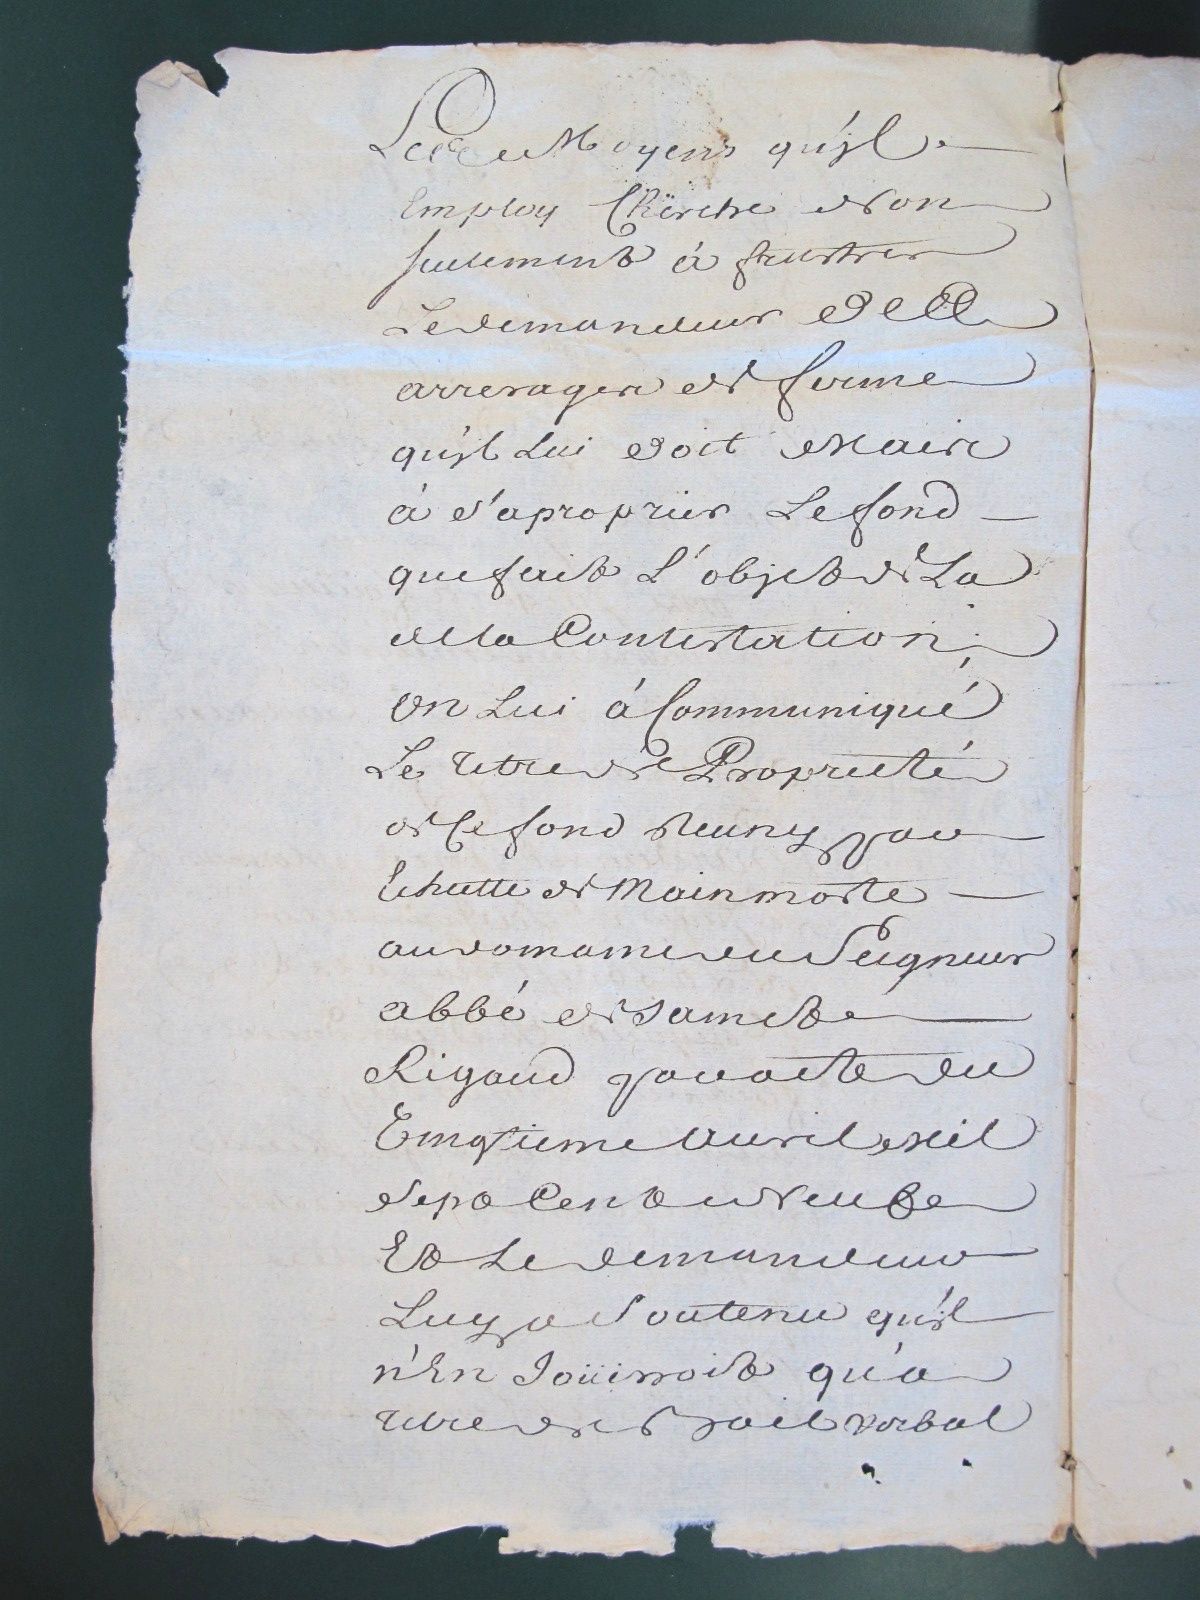 Les Moyens qu'jl
Employ Cherche Non
seulement á frustrer
Le demandeur Des
arrerages de ferme
qu'jl Lui doit Mais
á s'aproprier Le fond
que fait L'objet de La
de la Contestation
on Lui á Communiqué
Le titre de Proprieté
de Ce fond reuny par
Echutte de Mainmorte
au domaine du Seigneur
abbé de Sainct
Rigaud par acte du
Vingtieme Avril Mil
Sept Cent Neuf
Et Le demandeur
Luy a Soutenu qu'jl
n'En Joüissoit qu'a
titre de Bail verbal